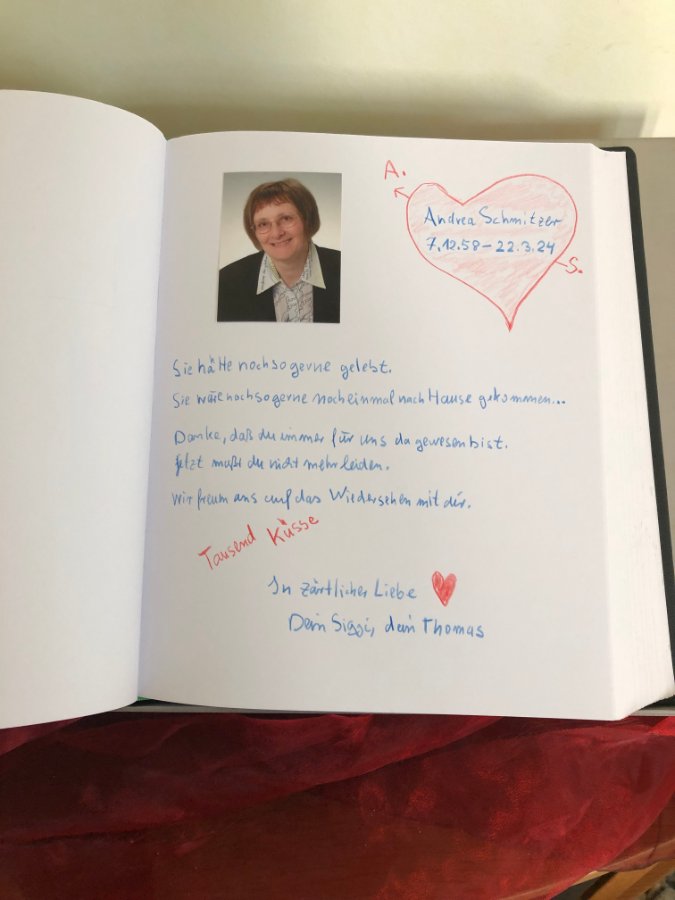 A.
Andrea Schmitzer
7.12.58 – 22.3.24
S.
Sie hätte noch so gerne gelebt.
Sie wäre noch so gerne noch einmal nach Hause gekommen...
Danke, daß du immer für uns da gewesen bist.
Jetzt mußt du nicht mehr leiden.
Wir freuen uns auf das Wiedersehen mit dir.
Tausend Küsse
In zärtlicher Liebe
Dein Siggi, dein Thomas